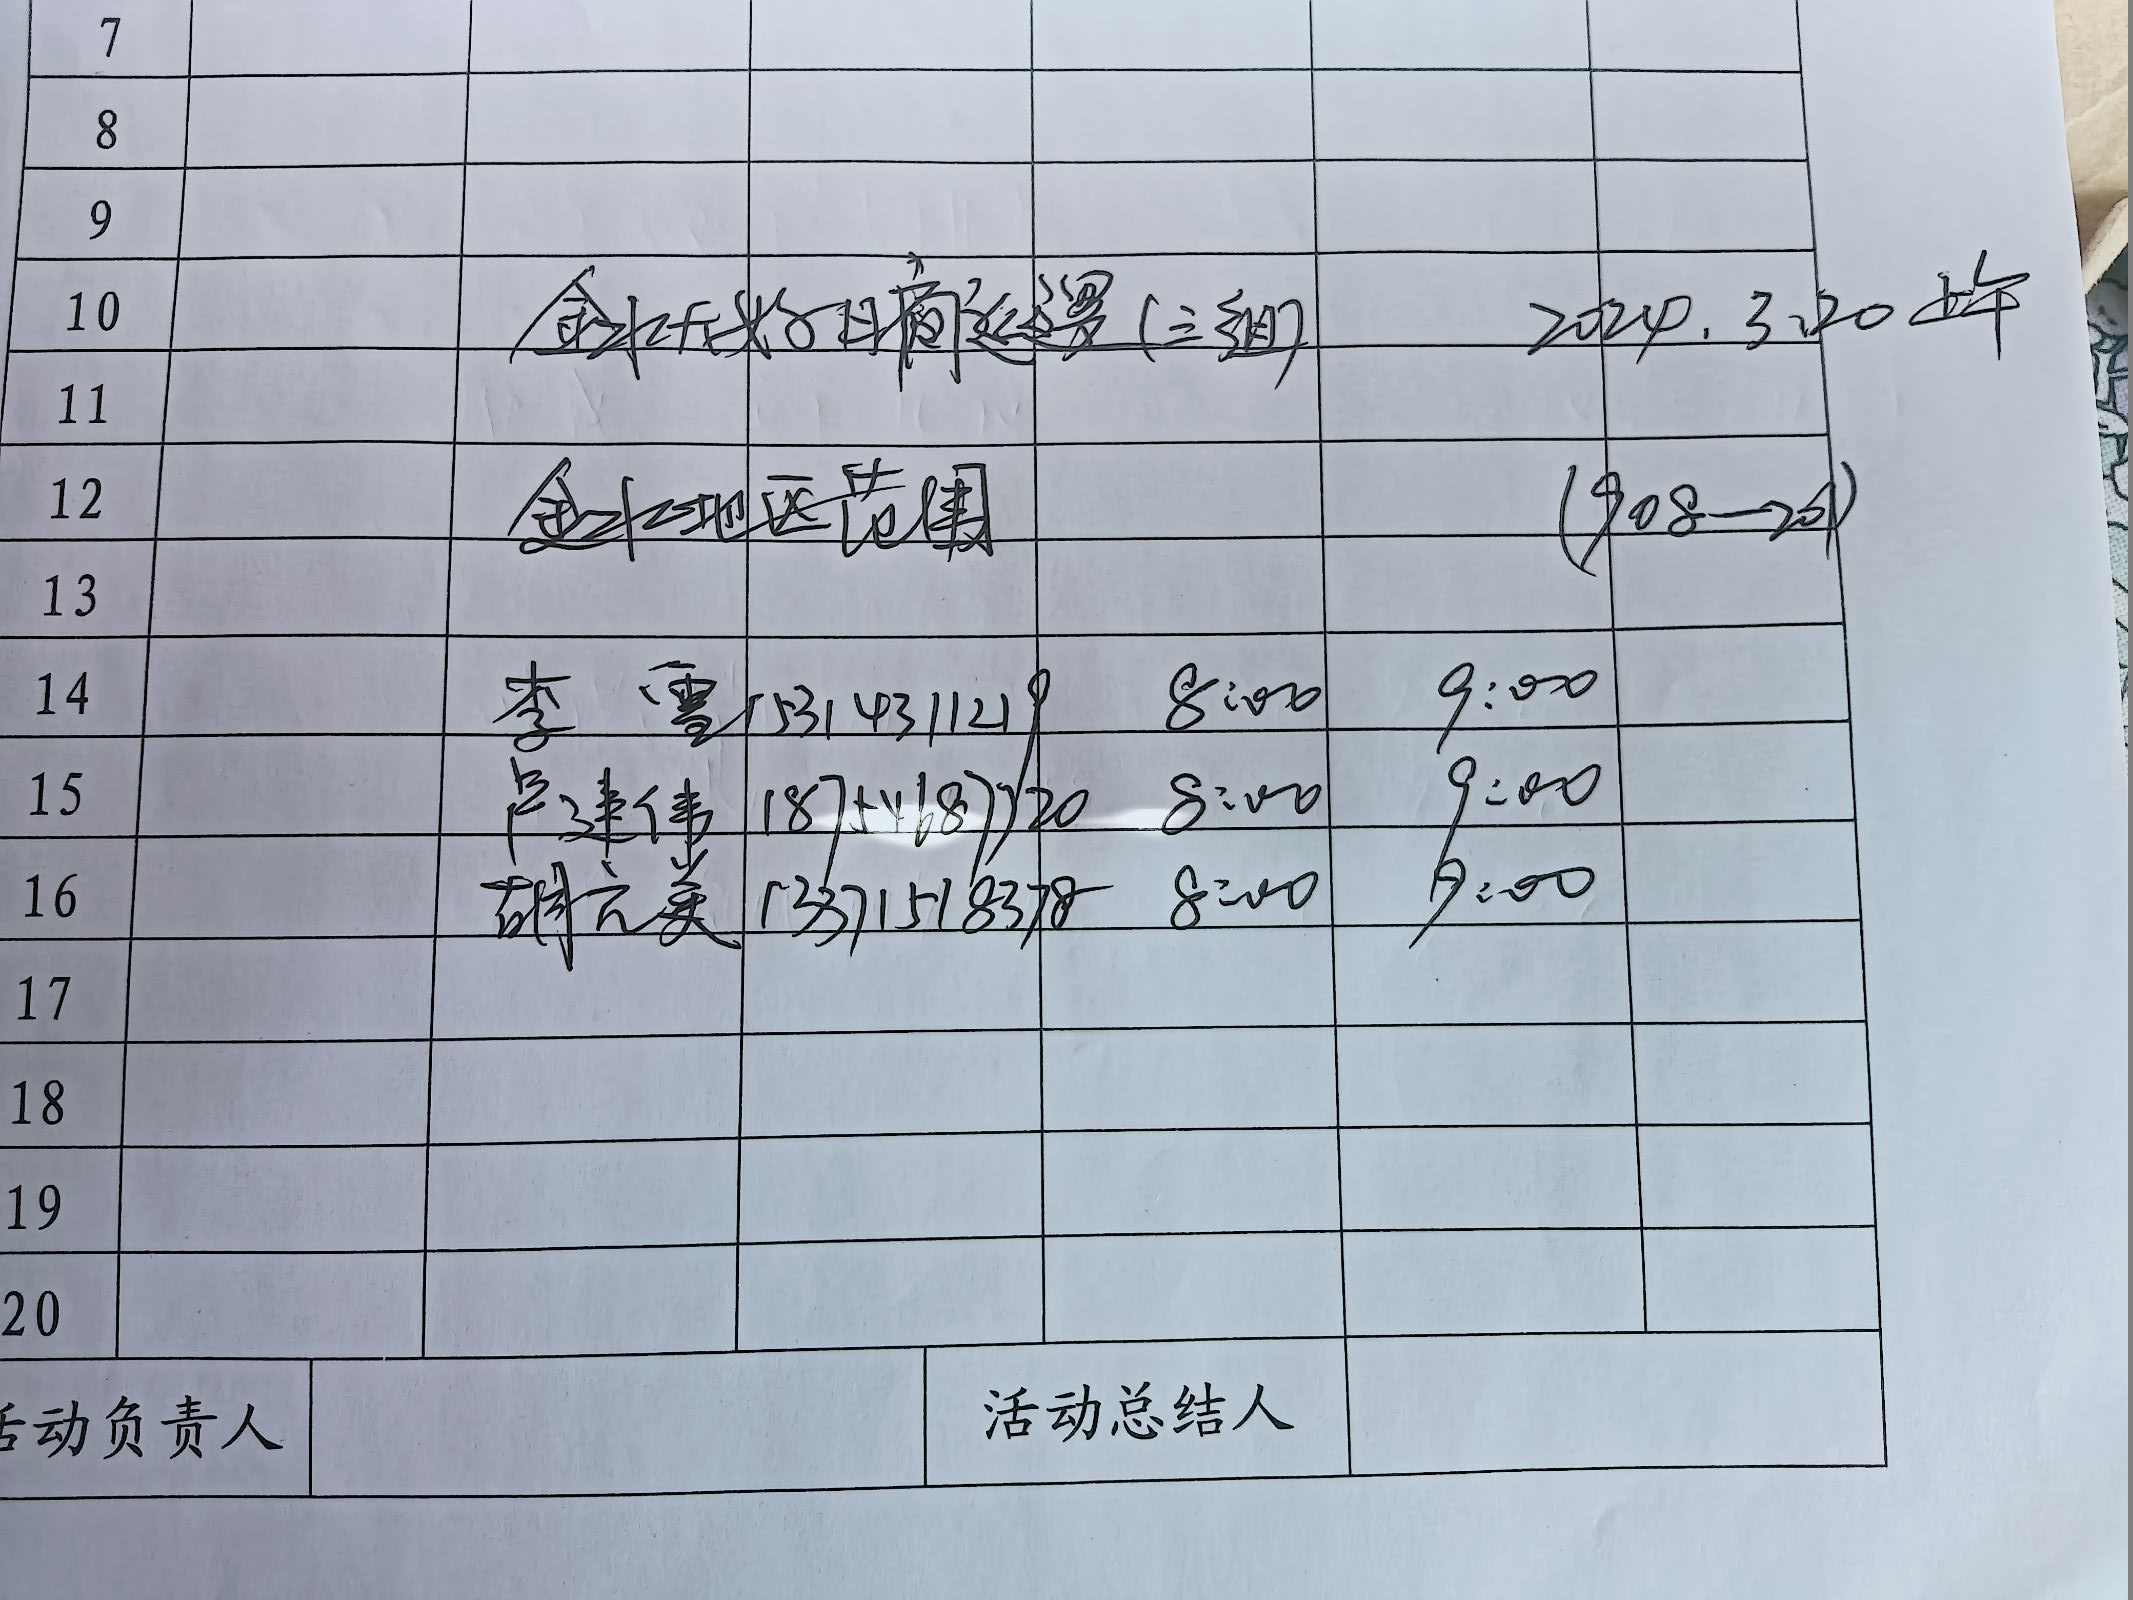 7
8
9
10 金水 日 巡逻(三组) 2024.3.20上午
11
12 金水地区范围
13
14 李雪 15314311219 8:00 9:00
15 卢建伟 8:00 9:00
16 胡元美 13371518378 8:00 9:00
17
18
19
20
活动负责人 活动总结人